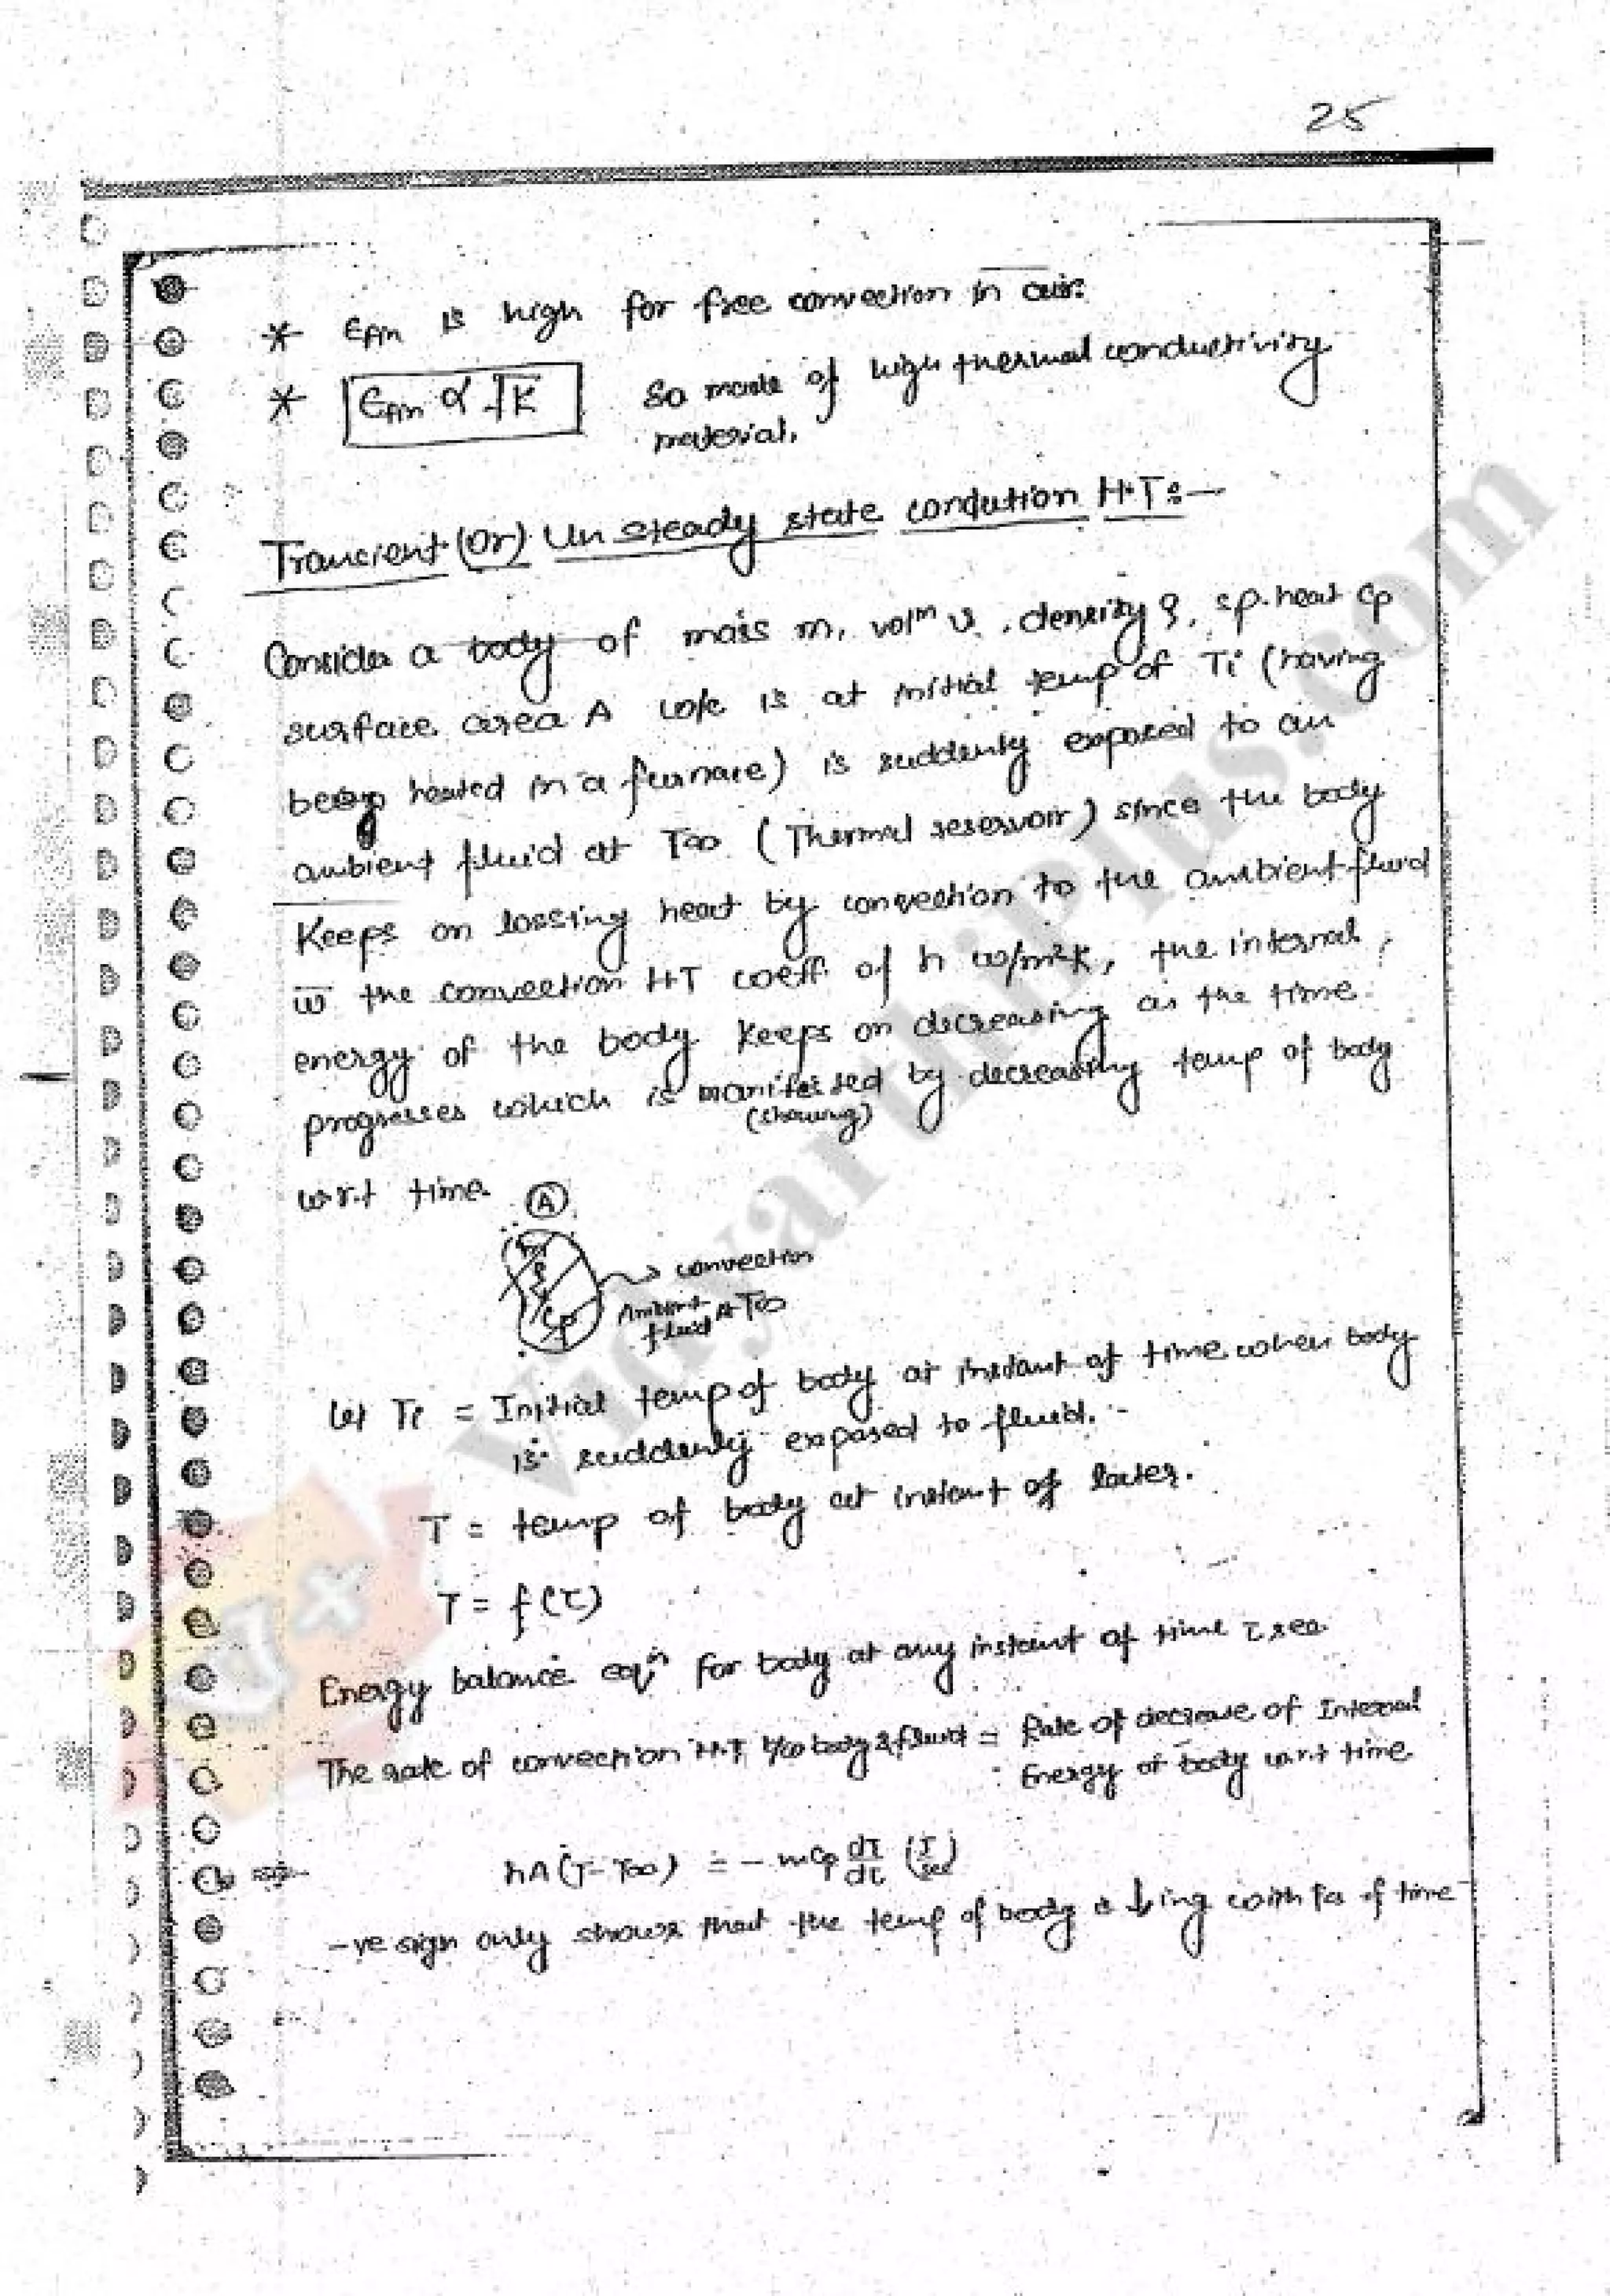 25
* Efin is high for free convection in air.
* Efin ∝ √K So made of high thermal conductivity
material.
Transient (or) Unsteady state condution H.T:-
Consider a body of mass m, volm v, density ρ, sp. heat Cp
surface area A w/c is at initial temp of Ti (having
being heated in a furnace) is suddenly exposed to an
ambient fluid at T∞ (Thermal reservoir) since the body
Keeps on lossing heat by convection to the ambient fluid
w̅ the convection HT coeff. of h w/m²k, the internal
energy of the body keeps on decreasing as the time
progresses which is manifested by decreasing temp of body
(showing)
w.r.t time.
A
m
ρ
v
Cp
convection
Ambient
fluid at T∞
let Ti = Initial temp of body at instant of time when body
is suddenly exposed to fluid.
T = temp of body at instant of later.
T = f(τ)
Energy balance eqn for body at any instant of time τ sec
The rate of convection H.T b/w body & fluid = Rate of decrease of Internal
Energy of body w.r.t time
hA(T-T∞) = - mCp dT/dτ (J/sec)
-ve sign only shows that the temp of body is ↓ing with fn of time
VidyarthiPlus.com
V+